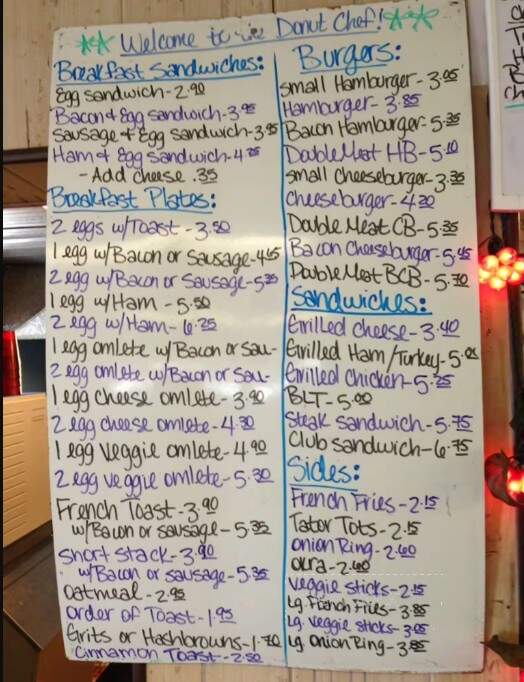 Welcome to the Donut Chef!
Breakfast Sandwiches:
Egg sandwich - 2.90
Bacon & Egg sandwich - 3.95
Sausage & Egg sandwich - 3.95
Ham & Egg Sandwich - 4.25
- Add cheese .35
Breakfast Plates:
2 eggs w/Toast - 3.50
1 egg w/Bacon or Sausage - 4.45
2 egg w/Bacon or Sausage - 5.35
1 egg w/Ham - 5.50
2 egg w/Ham - 6.25
1 egg omlete w/Bacon or Sau-
2 egg omlete w/Bacon or Sau-
1 egg cheese omlete - 3.90
2 egg cheese omlete - 4.30
1 egg veggie omlete - 4.90
2 egg veggie omlete - 5.30
French Toast - 3.90
w/Bacon or sausage - 5.35
Short stack - 3.90
w/Bacon or sausage - 5.35
Oatmeal - 2.95
order of Toast - 1.95
Grits or Hashbrowns - 1.70
Cinnamon Toast - 2.50
Burgers:
small Hamburger - 3.05
Hamburger - 3.85
Bacon Hamburger - 5.35
Double Meat HB - 5.10
small cheeseburger - 3.35
cheeseburger - 4.20
Double Meat CB - 5.35
Bacon Cheeseburger - 5.45
Double Meat BCB - 5.70
Sandwiches:
Grilled cheese - 3.40
Grilled Ham/Turkey - 5.
Grilled Chicken - 5.25
BLT - 5.00
Steak sandwich - 5.75
Club sandwich - 6.75
Sides:
French Fries - 2.15
Tator Tots - 2.15
Onion Ring - 2.60
Okra - 2.60
Veggie sticks - 2.15
Lg. French Fries - 3.85
Lg. Veggie sticks - 3.05
Lg. Onion Ring - 3.85